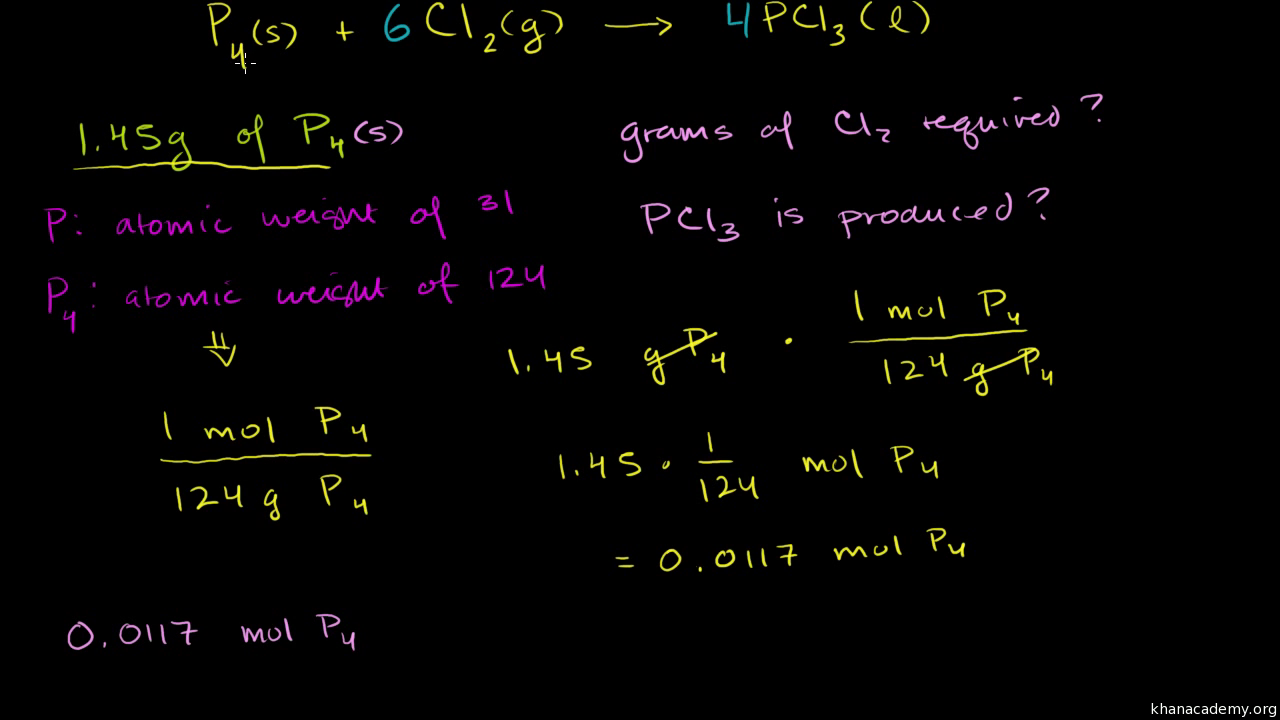 P₄(s) + 6 Cl₂(g) → 4 PCl₃(l)
1.45g of P₄(s)
grams of Cl₂ required?
P: atomic weight of 31
PCl₃ is produced?
P₄: atomic weight of 124
⇓
1.45 g P₄ · 1 mol P₄ / 124 g P₄
1 mol P₄ / 124 g P₄
1.45 · 1/124 mol P₄
= 0.0117 mol P₄
0.0117 mol P₄
khanacademy.org